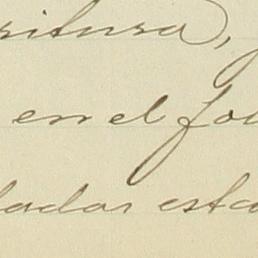 critura,
en el fo
ladas esta